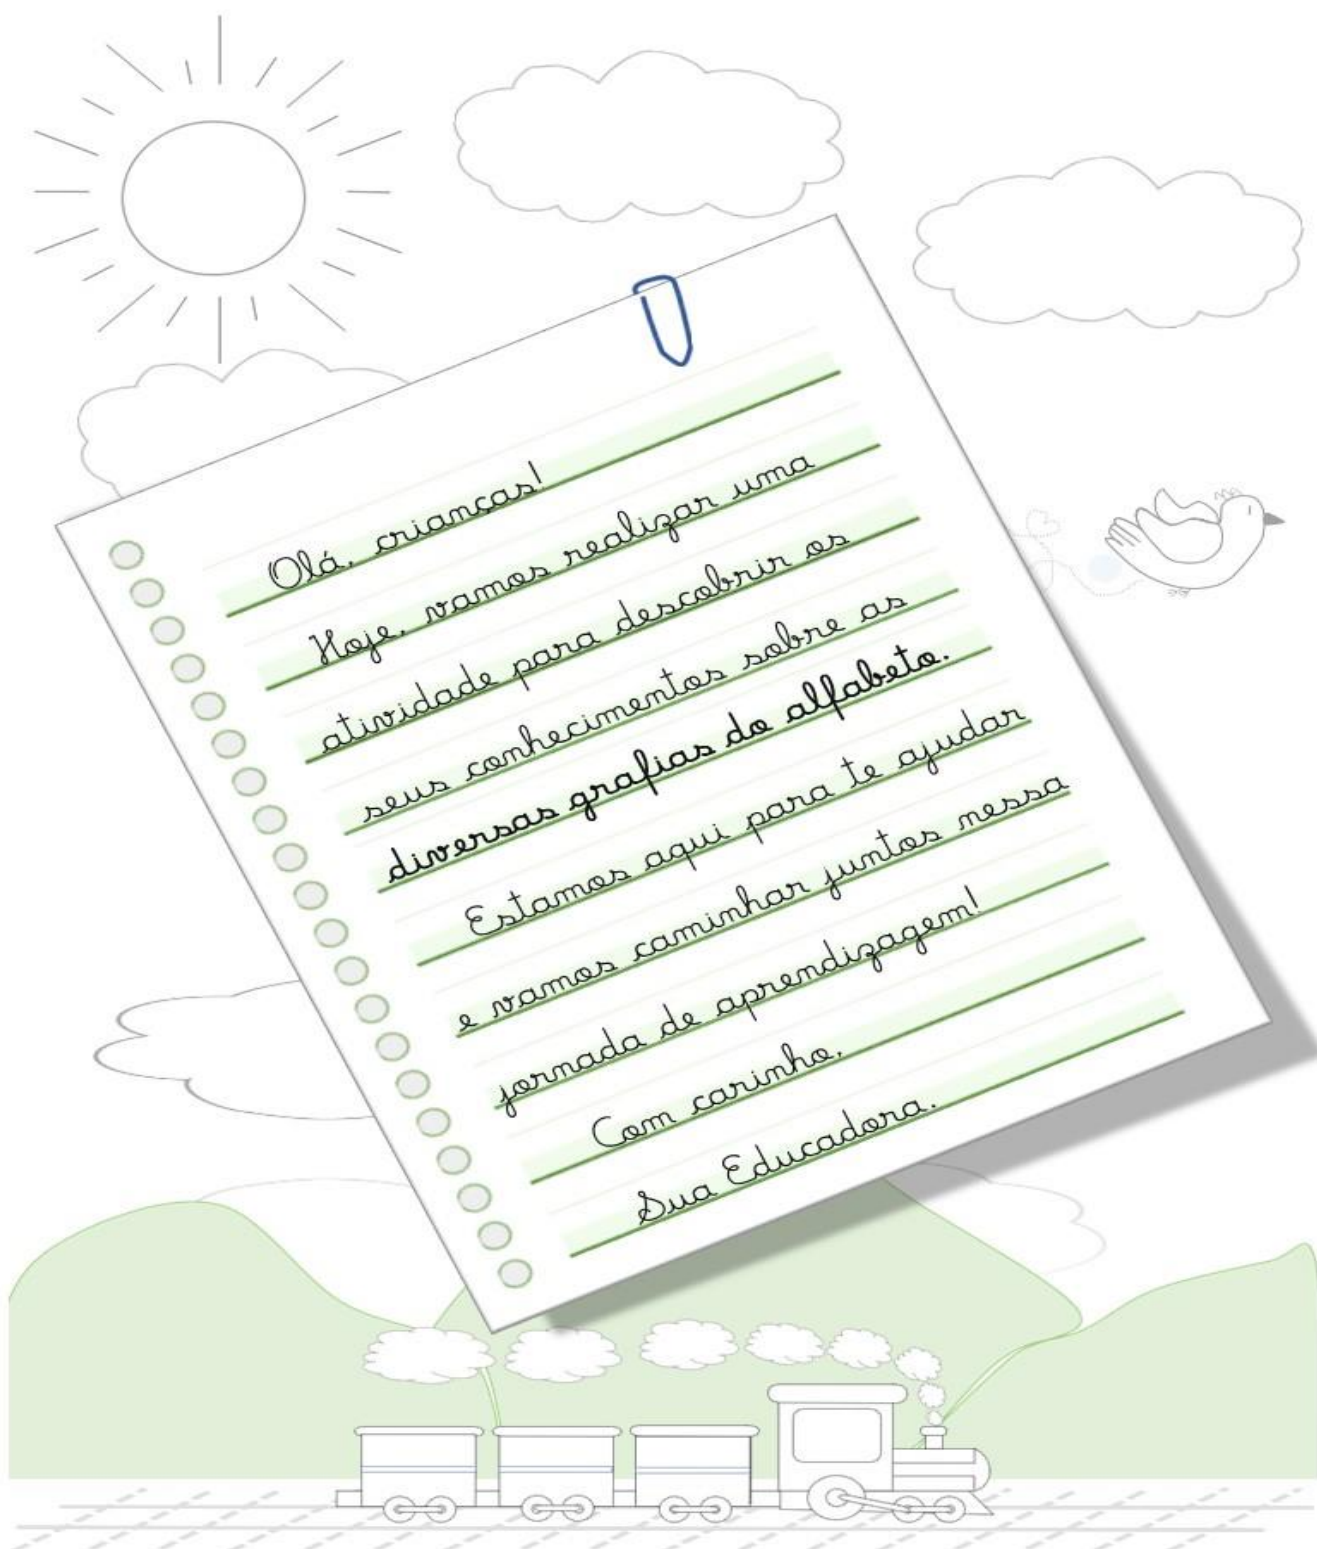 Olá, crianças!
Hoje, vamos realizar uma
atividade para descobrir os
seus conhecimentos sobre as
diversas grafias do alfabeto.
Estamos aqui para te ajudar
e vamos caminhar juntos nessa
jornada de aprendizagem!
Com carinho,
Sua Educadora.